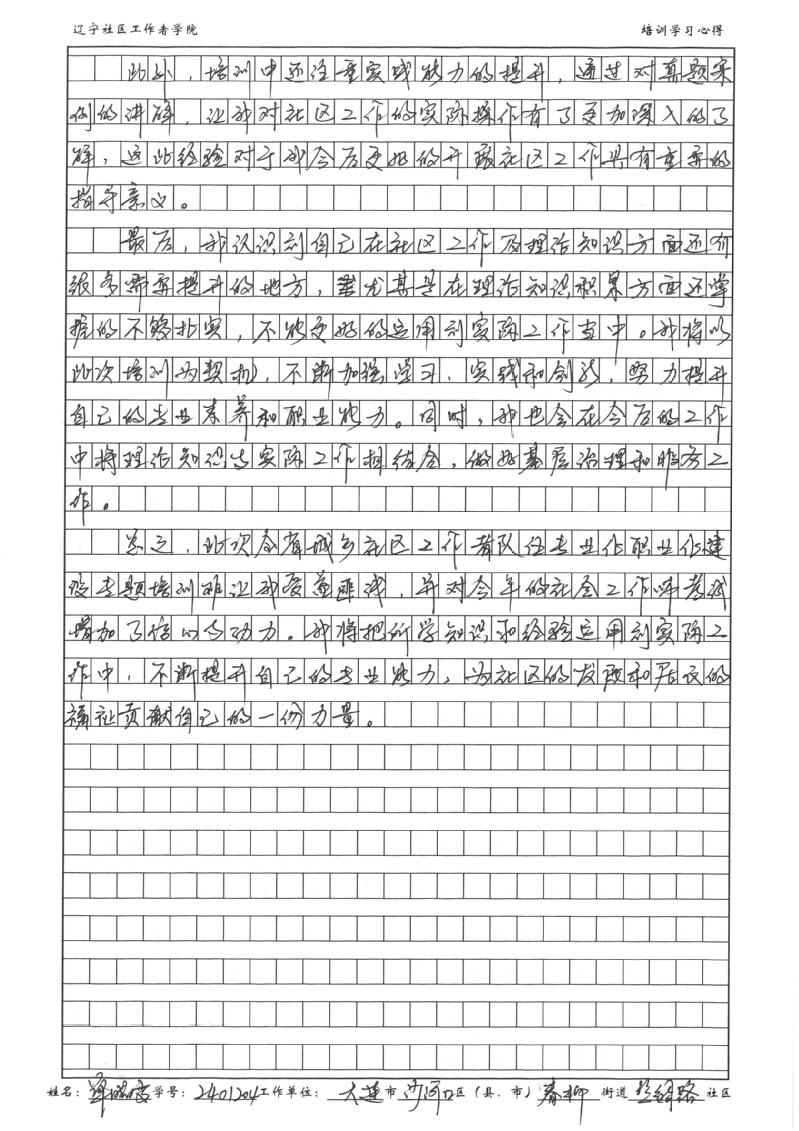 辽宁社区工作者学院 培训学习心得
此外，培训中还注重实践能力的提升，通过对真题案
例的讲解，让我对社区工作的实际操作有了更加深入的了
解，这些经验对于我今后更好的开展社区工作具有重要的
指导意义。
最后，我认识到自己在社区工作及理论知识方面还有
很多需要提升的地方，尤其是在理论知识积累方面还掌
握的不够扎实，不能更好的运用到实际工作当中。我将以
此次培训为契机，不断加强学习、实践和创新，努力提升
自己的专业素养和职业能力。同时，我也会在今后的工作
中将理论知识与实际工作相结合，做好基层治理和服务工
作。
总之，此次全省城乡社区工作者队伍专业化职业化建
设专题培训班让我受益匪浅，并对今年的社会工作师考试
增加了信心与动力。我将把所学知识和经验运用到实际工
作中，不断提升自己的专业能力，为社区的发展和居民的
福祉贡献自己的一份力量。
姓名： 学号：2401204 工作单位：大连市沙河口区（县、市）春柳街道 路社区